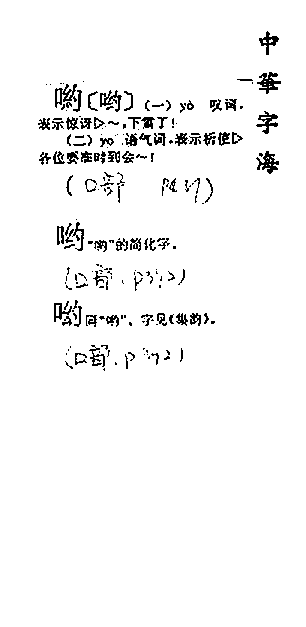 中華字海
喲〔哟〕(一) yō 叹词,
表示惊讶▷～,下雪了!
(二) yo 语气词,表示祈使▷
各位要准时到会～!
(口部
哟 "喲"的简化字。
(口部. P392)
同"喲"。字见《集韵》。
(口部. P392)